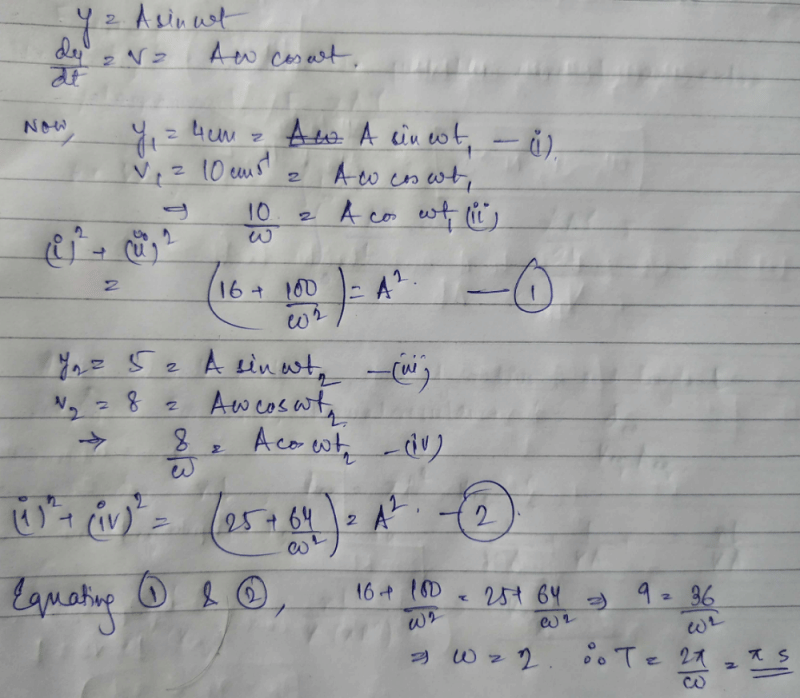 y = A sin ωt
dy/dt = v = Aω cos ωt.
Now, y₁ = 4cm = A sin ωt₁ — (i)
v₁ = 10 cm s⁻¹ = Aω cos ωt₁
⇒ 10/ω = A cos ωt₁ (ii)
(i)² + (ii)²
= (16 + 100/ω²) = A². — ①
y₂ = 5 = A sin ωt₂ — (iii)
v₂ = 8 = Aω cos ωt₂
→ 8/ω = A cos ωt₂ — (iv)
(i)² + (iv)² = (25 + 64/ω²) = A². — ②.
Equating ① & ②, 16 + 100/ω² = 25 + 64/ω² ⇒ 9 = 36/ω²
⇒ ω = 2. ∴ T = 2π/ω = π s